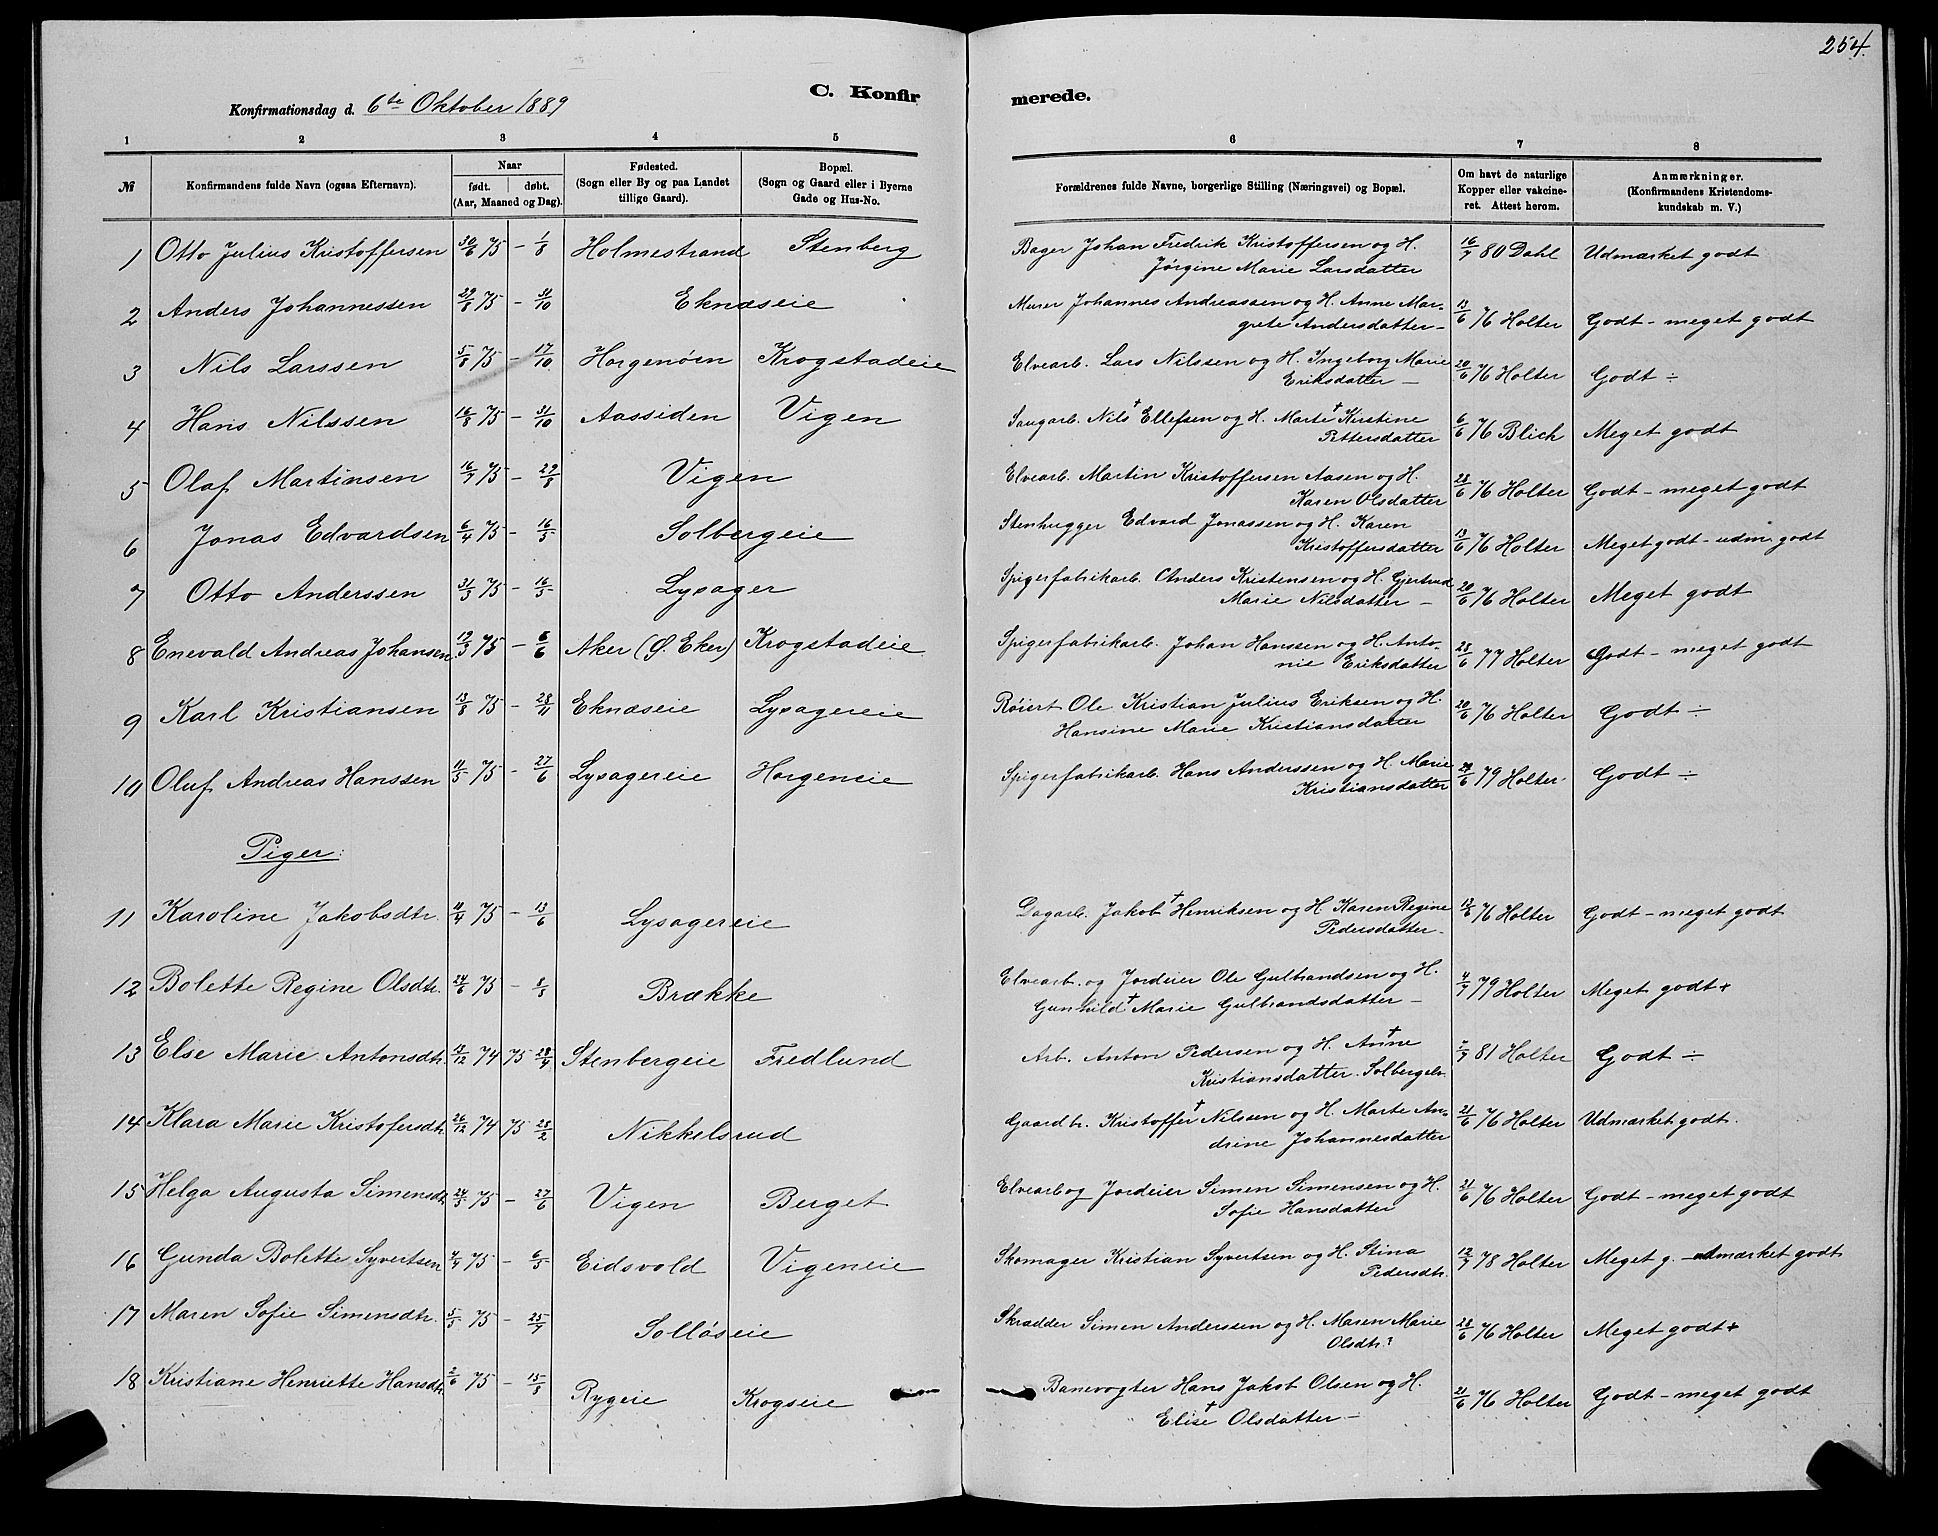 254.
Konfirmationsdag d. 6te Oktober 1889
C. Konfirmerede.
1 2 3 4 5 6 7 8
№ Konfirmandens fulde Navn (ogsaa Efternavn). Naar født. døbt. (Aar, Maaned og Dag). Fødested. (Sogn eller By og paa Landet tillige Gaard). Bopæl. (Sogn og Gaard eller i Byerne Gade og Hus-No. Forældrenes fulde Navne, borgerlige Stilling (Næringsvei) og Bopæl. Om havt de naturlige Kopper eller vakcineret. Attest herom. Anmærkninger. (Konfirmandens Kristendomskundskab m. V.)
1 Otto Julius Kristoffersen 30/6 75 - 1/8 Holmestrand Stenberg Bager Johan Fredrik Kristoffersen og H. Jørgine Marie Larsdatter 16/7 80 Dahl Udmærket godt
2 Anders Johannessen 29/8 75 - 31/10 Eknæseie Murer Johannes Andreassen og H. Anne Margrete Andersdatter - 13/6 76 Holter Godt - meget godt
3 Nils Larssen 5/8 75 - 17/10 Horgenøen Krogstadeie Elvearb. Lars Nilssen og H. Ingeborg Marie Eriksdatter - 20/6 76 Holter Godt ÷
4 Hans Nilssen 16/8 75 - 31/10 Aassiden Vigen Saugarb. Nils † Ellefsen og H. Marte † Kirstine Pettersdatter 6/6 76 Blich Meget godt
5 Olaf Martinsen 16/7 75 - 29/8 Vigen Elvearb. Martin Kristoffersen Aasen og H. Karen Olsdatter 28/6 76 Holter Godt - meget godt
6 Jonas Edvardsen 6/4 75 - 16/5 Solbergeie Stenhugger Edvard Jonassen og H. Karen Kristoffersdatter 13/6 76 Holter Meget godt - udm. godt
7 Otto Anderssen 31/3 75 - 16/5 Lysager Spigerfabrikarb. Anders Kristensen og H. Gjertrud Marie Nilsdatter - 20/6 76 Holter Meget godt
8 Enevald Andreas Johansen 19/3 75 - 6/6 Aker (Ø. Eker) Krogstadeie Spigerfabrikarb. Johan Hanssen og H. Antonie Eriksdatter 28/6 77 Holter Godt - meget godt
9 Karl Kristiansen 13/8 75 - 28/11 Eknæseie Lysagereie Røiert Ole Kristian Julius Eriksen og H. Hansine Marie Kristiansdatter 20/6 76 Holter Godt ÷
10 Oluf Andreas Hanssen 11/5 75 - 27/6 Lysagereie Horgeneie Spigerfabrikarb. Hans Anderssen og H. Marie Kristiansdatter /6 79 Holter Godt ÷
Piger:
11 Karoline Jakobsdtr. 11/4 75 - 13/6 Lysagereie Dagarb. Jakob † Henriksen og H. Karen Regine Pedersdatter - 13/6 76 Holter Godt - meget godt
12 Bolette Regine Olsdtr. 24/6 75 - 8/8 Brække Elvearb. og Jordeier Ole Gulbrandsen og H. Gunhild † Marie Gulbrandsdatter - 4/7 79 Holter Meget godt +
13 Else Marie Antonsdtr. 13/12 74 75 28/4 Stenbergeie Fredlund Arb. Anton Pedersen og H. Anne † Kristiansdatter. Solbergelv. 7/7 81 Holter Godt ÷
14 Klara Marie Kristofersdtr. 26/12 74 75 28/2 Nikkelsrud Gaardbr. Kristoffer † Nilssen og H. Marte Andrine Johannesdatter 21/6 76 Holter Udmærket godt.
15 Helga Augusta Simensdtr. 24/5 75 - 27/6 Vigen Berget Elvearb og Jordeier Simen Simensen og H. Sofie Hansdatter 21/6 76 Holter Godt - meget godt
16 Gunda Bolette Syvertsen 4/4 75 - 6/5 Eidsvold Vigeneie Skomager Kristian Syvertsen og H. Stina Pedersdtr. 12/7 78 Holter Meget g. - udmærket godt
17 Maren Sofie Simensdtr. 5/5 75 - 25/7 Solløseie Skrædder Simen Anderssen og H. Maren Marie Olsdtr. 28/6 76 Holter Meget godt +
18 Kristiane Henriette Hansdtr. 2/6 75 - 15/8 Rygeie Krogseie Banevogter Hans Jakob Olsen og H. Elise † Olsdatter - 21/6 76 Holter Godt - meget godt